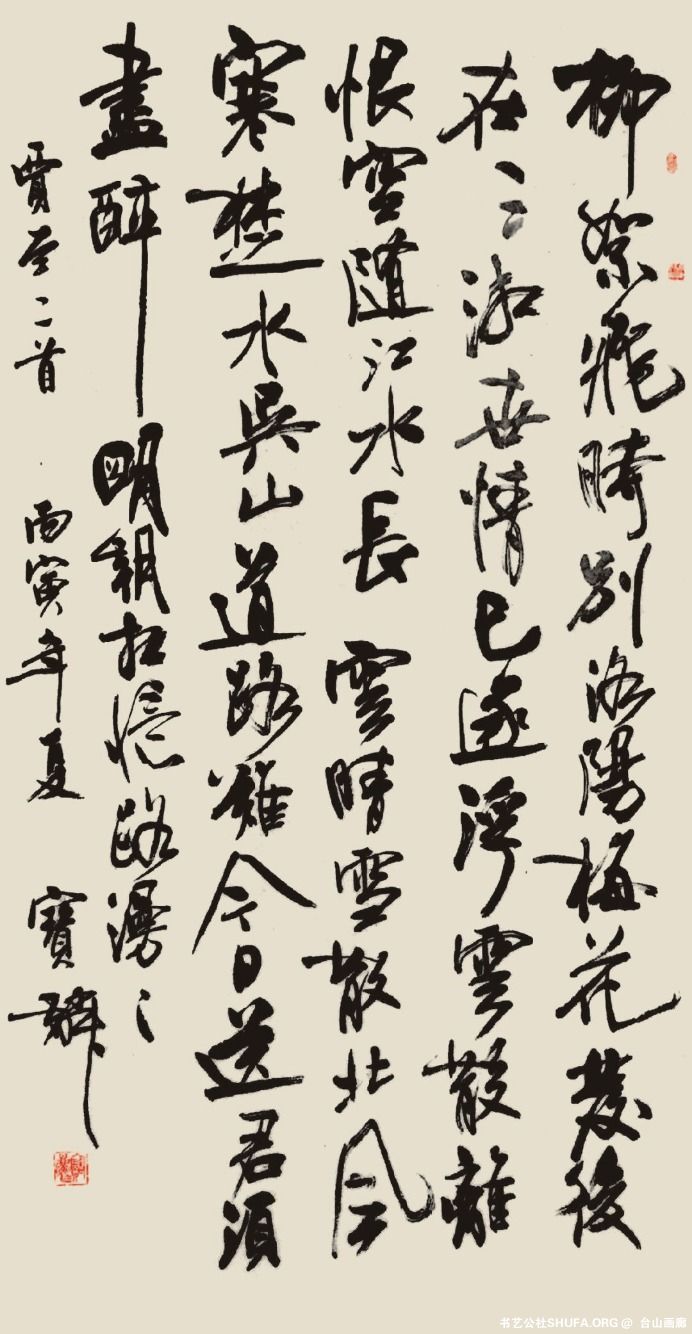 柳絮飛時別洛陽梅花發後
在三湘世情已逐浮雲散離
恨空隨江水長 雲晴雪散北風
寒楚水吳山道路難今日送君須
盡醉明朝相憶路漫〻
賈至二首 丙寅年夏 寶麟
书艺公社SHUFA.ORG @ 台山画廊